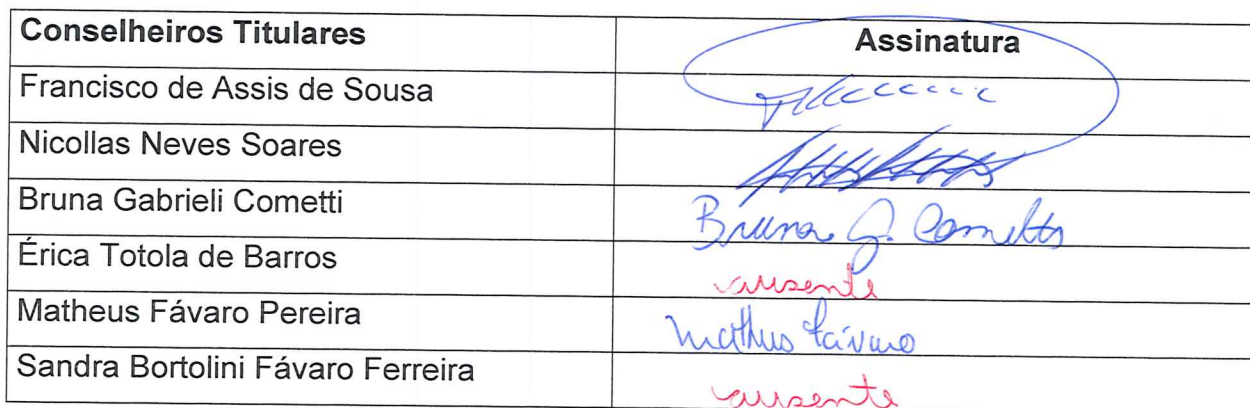 Conselheiros Titulares Assinatura
Francisco de Assis de Sousa
Nicollas Neves Soares
Bruna Gabrieli Cometti Bruna G. Cometti
Érica Totola de Barros ausente
Matheus Fávaro Pereira Matheus Fávaro
Sandra Bortolini Fávaro Ferreira ausente